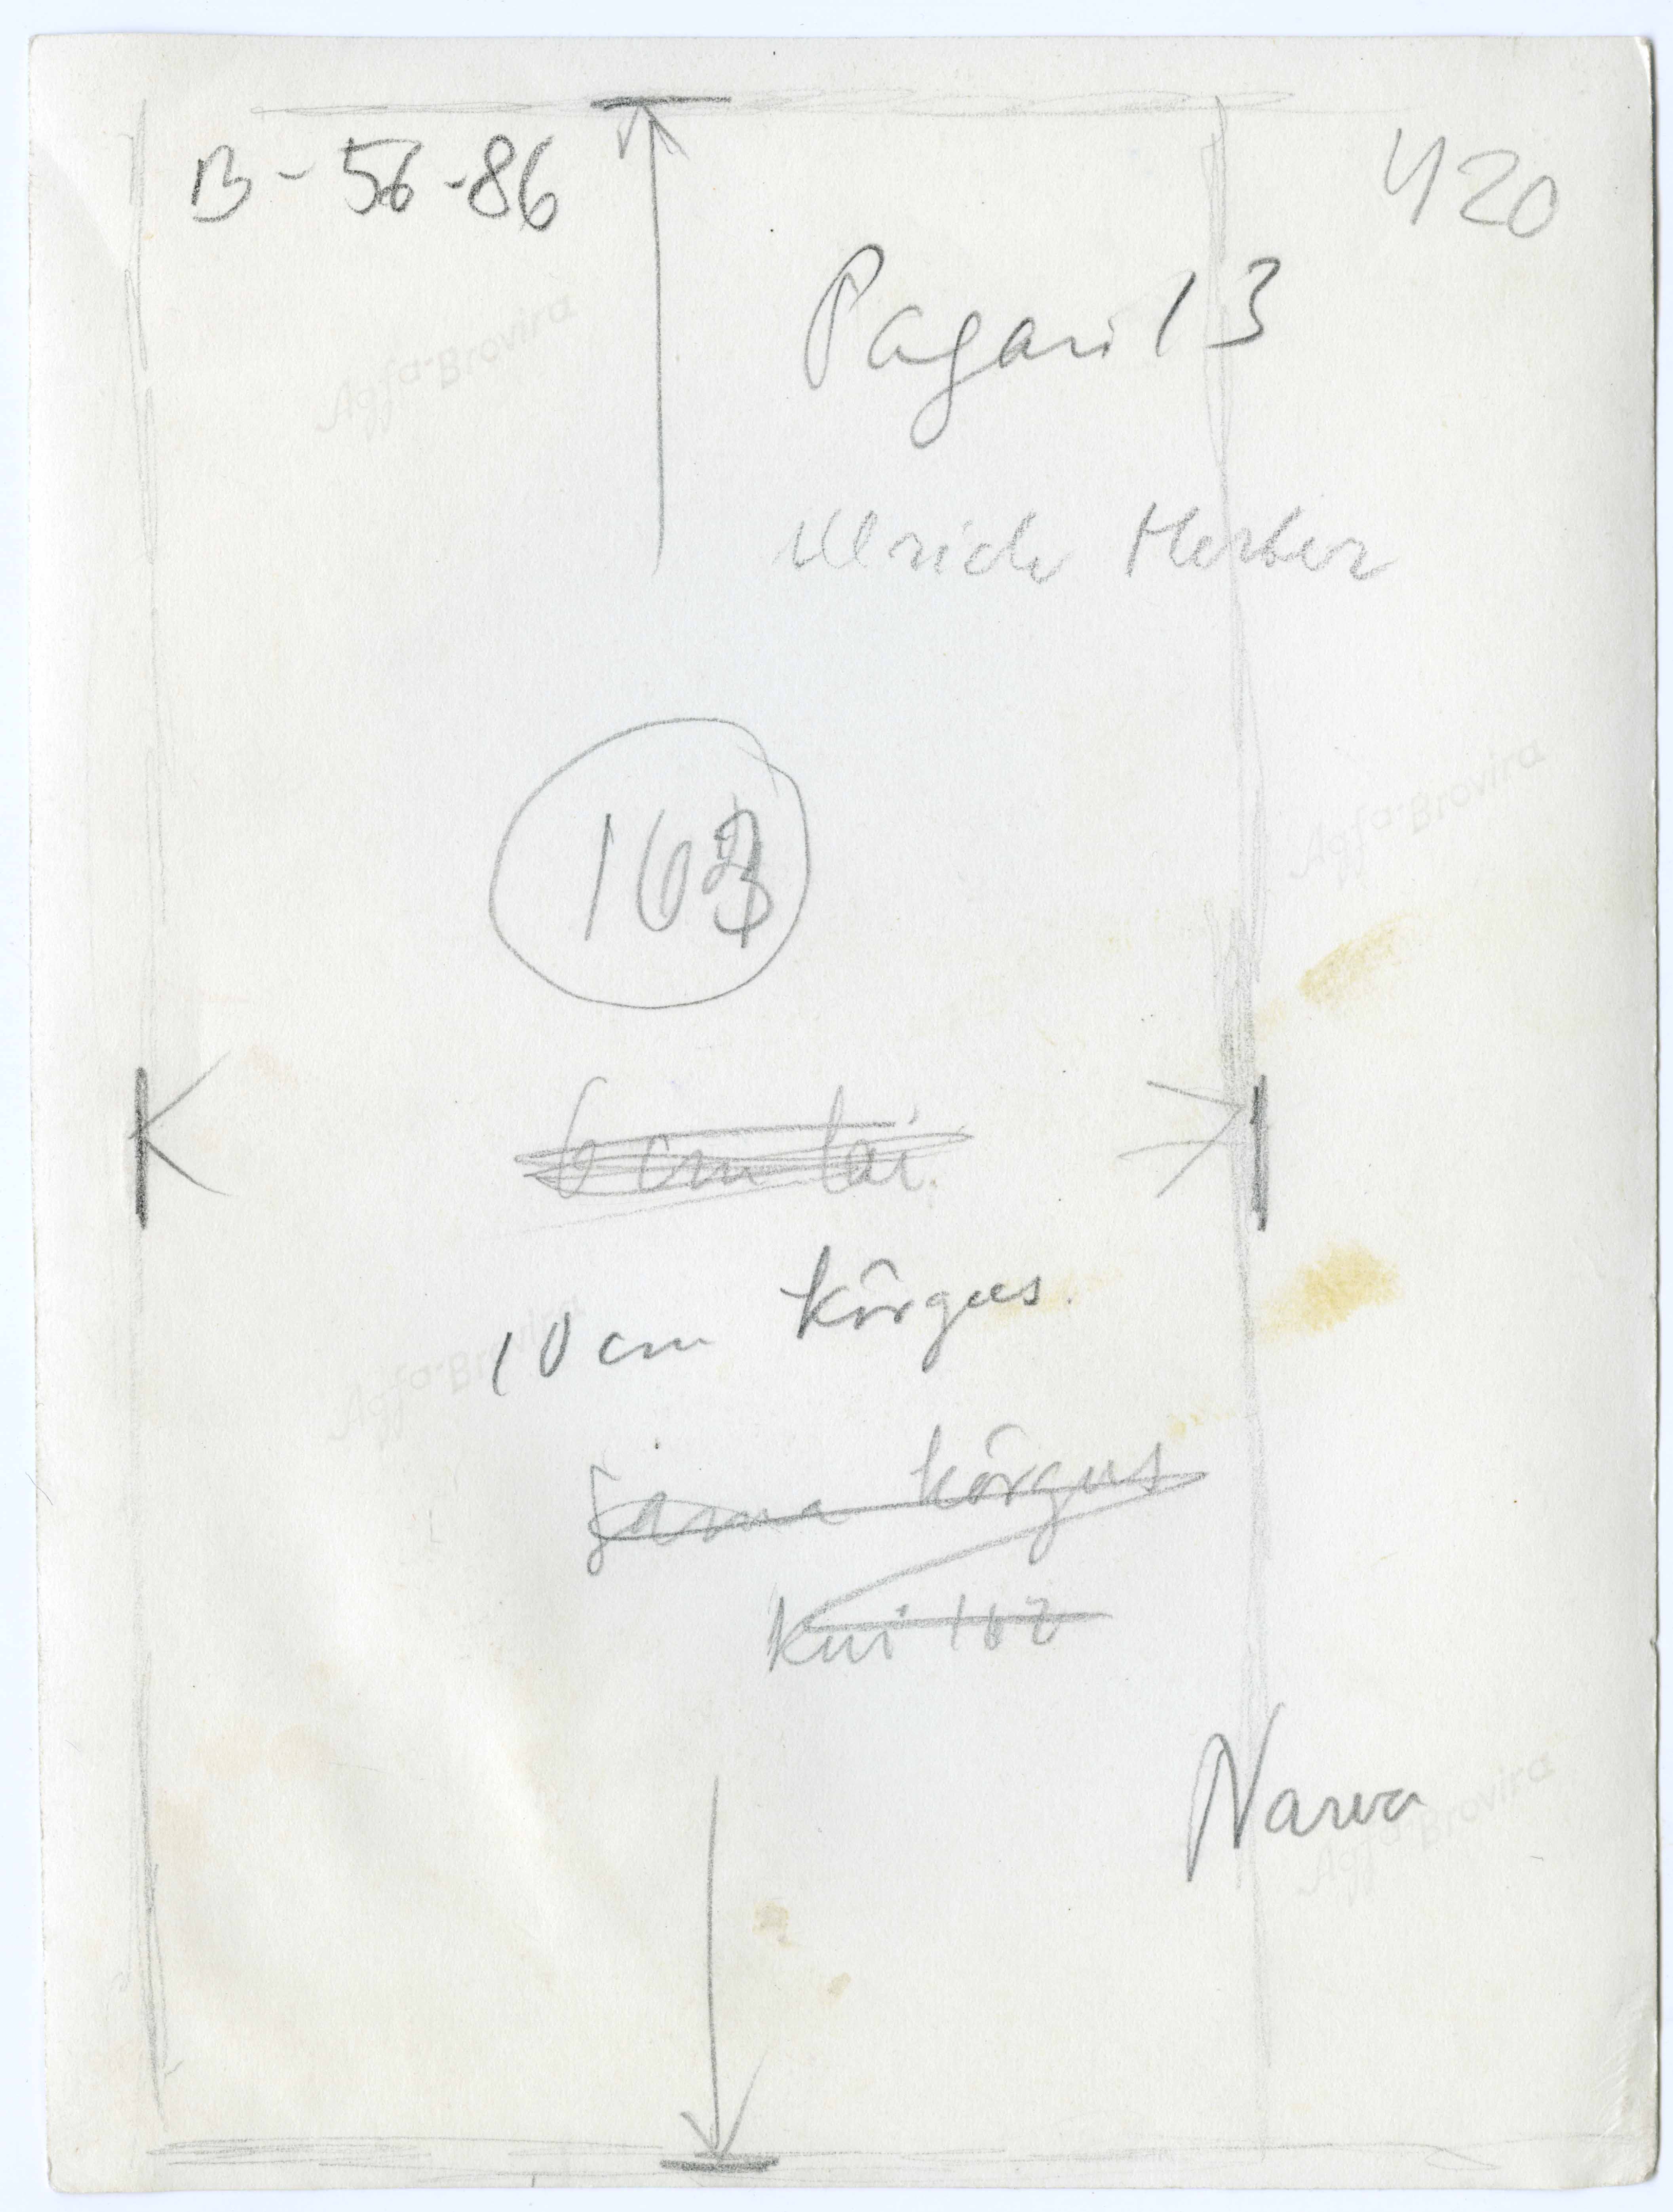 B-56-86
420
Pagari 13
Ulrich
Agfa-Brovira
163
Agfa-Brovira
6 cm lai.
10 cm kõrgus.
Agfa-Brovira
Sama kõrgus
kui 162
Narva
Agfa-Brovira